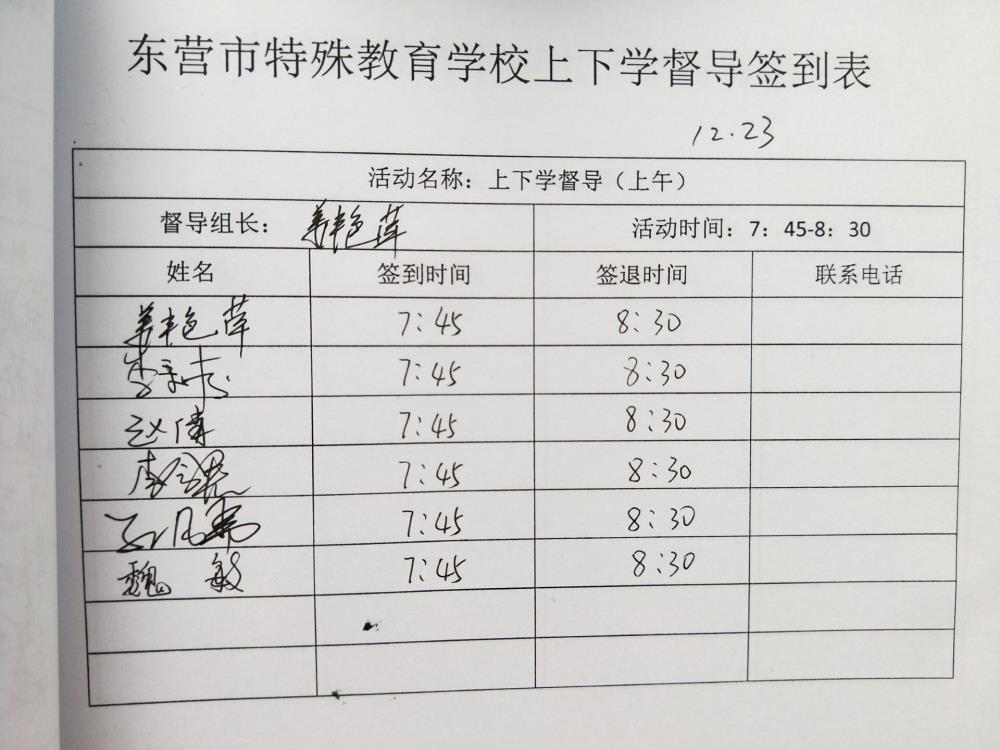 东营市特殊教育学校上下学督导签到表
12.23
活动名称：上下学督导（上午）
督导组长：姜艳萍 活动时间：7：45-8：30
姓名 签到时间 签退时间 联系电话
姜艳萍 7:45 8:30
李 7:45 8:30
赵伟 7:45 8:30
李 7:45 8:30
7:45 8:30
魏敏 7:45 8:30